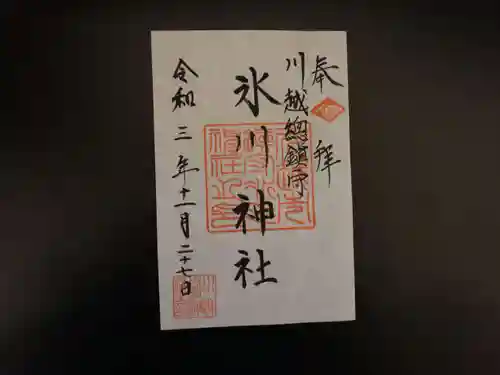 奉拝
川越総鎮守
氷川神社
令和三年十一月二十七日